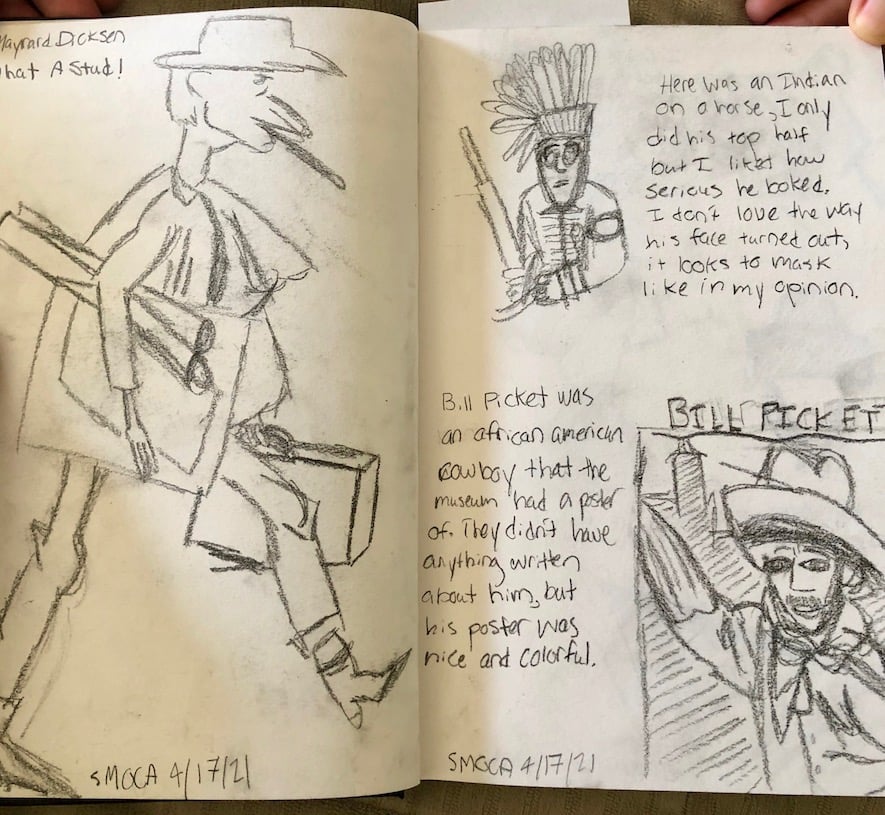 Maynard Dicksen
What A Stud!
SMOCA 4/17/21
Here was an Indian
on a horse, I only
did his top half
but I liked how
serious he looked.
I don't love the way
his face turned out,
it looks to mask
like in my opinion.
Bill Picket was
an african american
cowboy that the
museum had a poster
of. They didn't have
anything written
about him, but
his poster was
nice and colorful.
BILL PICKET
SMOCA 4/17/21